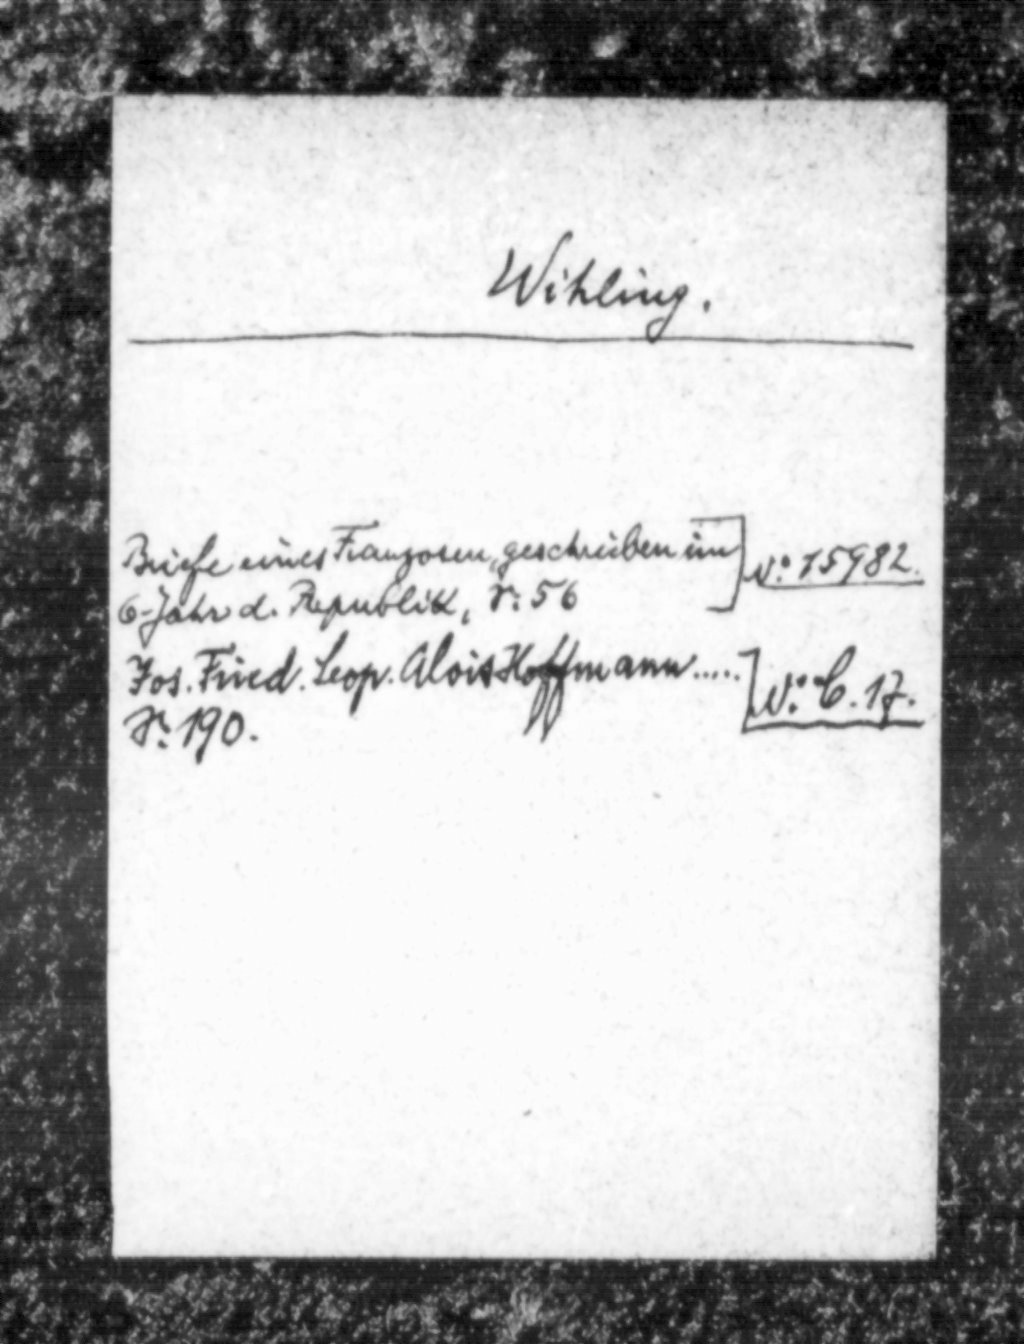 Wihling.
Briefe eines Franzosen, geschrieben im
6-Jahr d. Republik, S: 56
No: 15982.
Jos. Fried. Leop. Alois Hoffmann .....
S: 190.
No: C. 17.